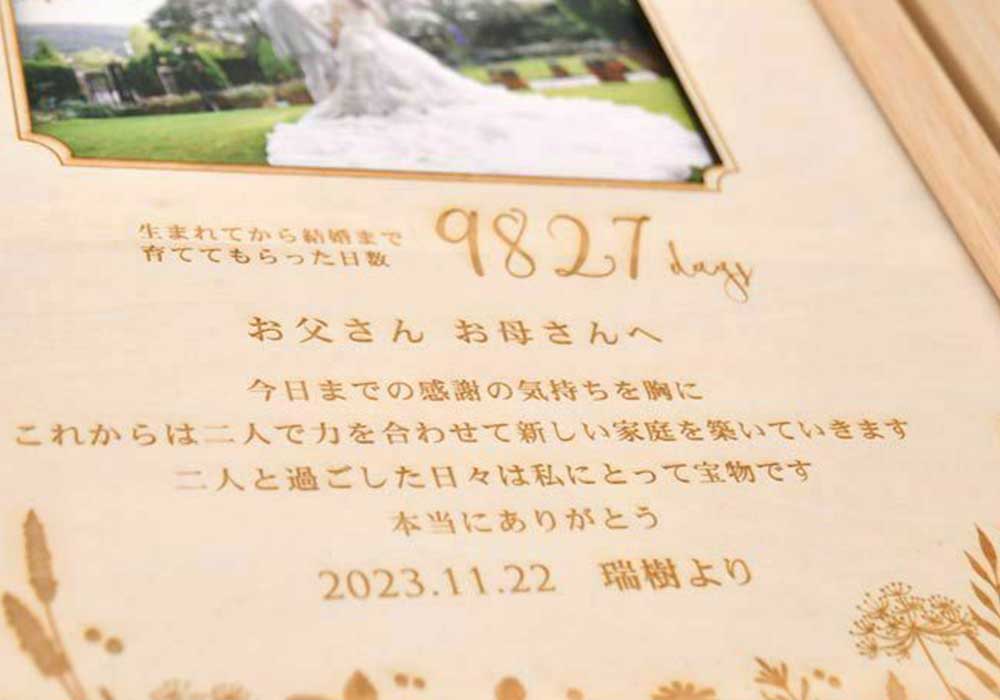 生まれてから結婚まで
育ててもらった日数
9827 days
お父さん お母さんへ
今日までの感謝の気持ちを胸に
これからは二人で力を合わせて新しい家庭を築いていきます
二人と過ごした日々は私にとって宝物です
本当にありがとう
2023.11.22 瑞樹より